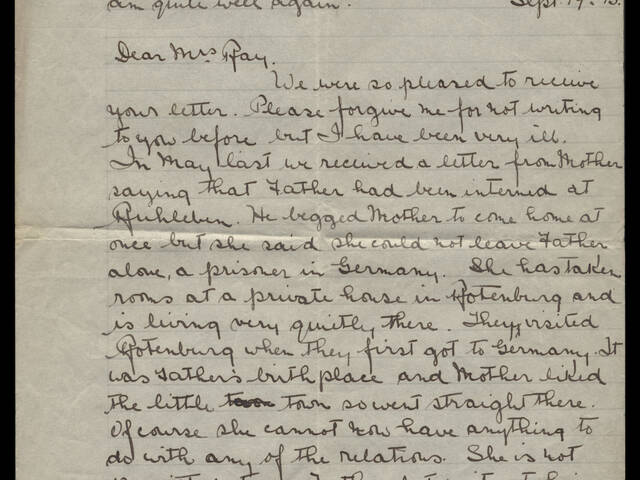 am quite well again. Sept. 19. 15.
Dear Mrs Ray.
We were so pleased to receive
your letter. Please forgive me for not writing
to you before but I have been very ill.
In May last we received a letter from Mother
saying that Father had been interned at
Ruhleben. He begged Mother to come home at
once but she said she could not leave Father
alone, a prisoner in Germany. She has taken
rooms at a private house in Rotenburg and
is living very quietly there. They visited
Rotenburg when they first got to Germany. It
was Father's birthplace and Mother liked
the little town so went straight there.
Of course she cannot now have anything to
do with any of the relations. She is not